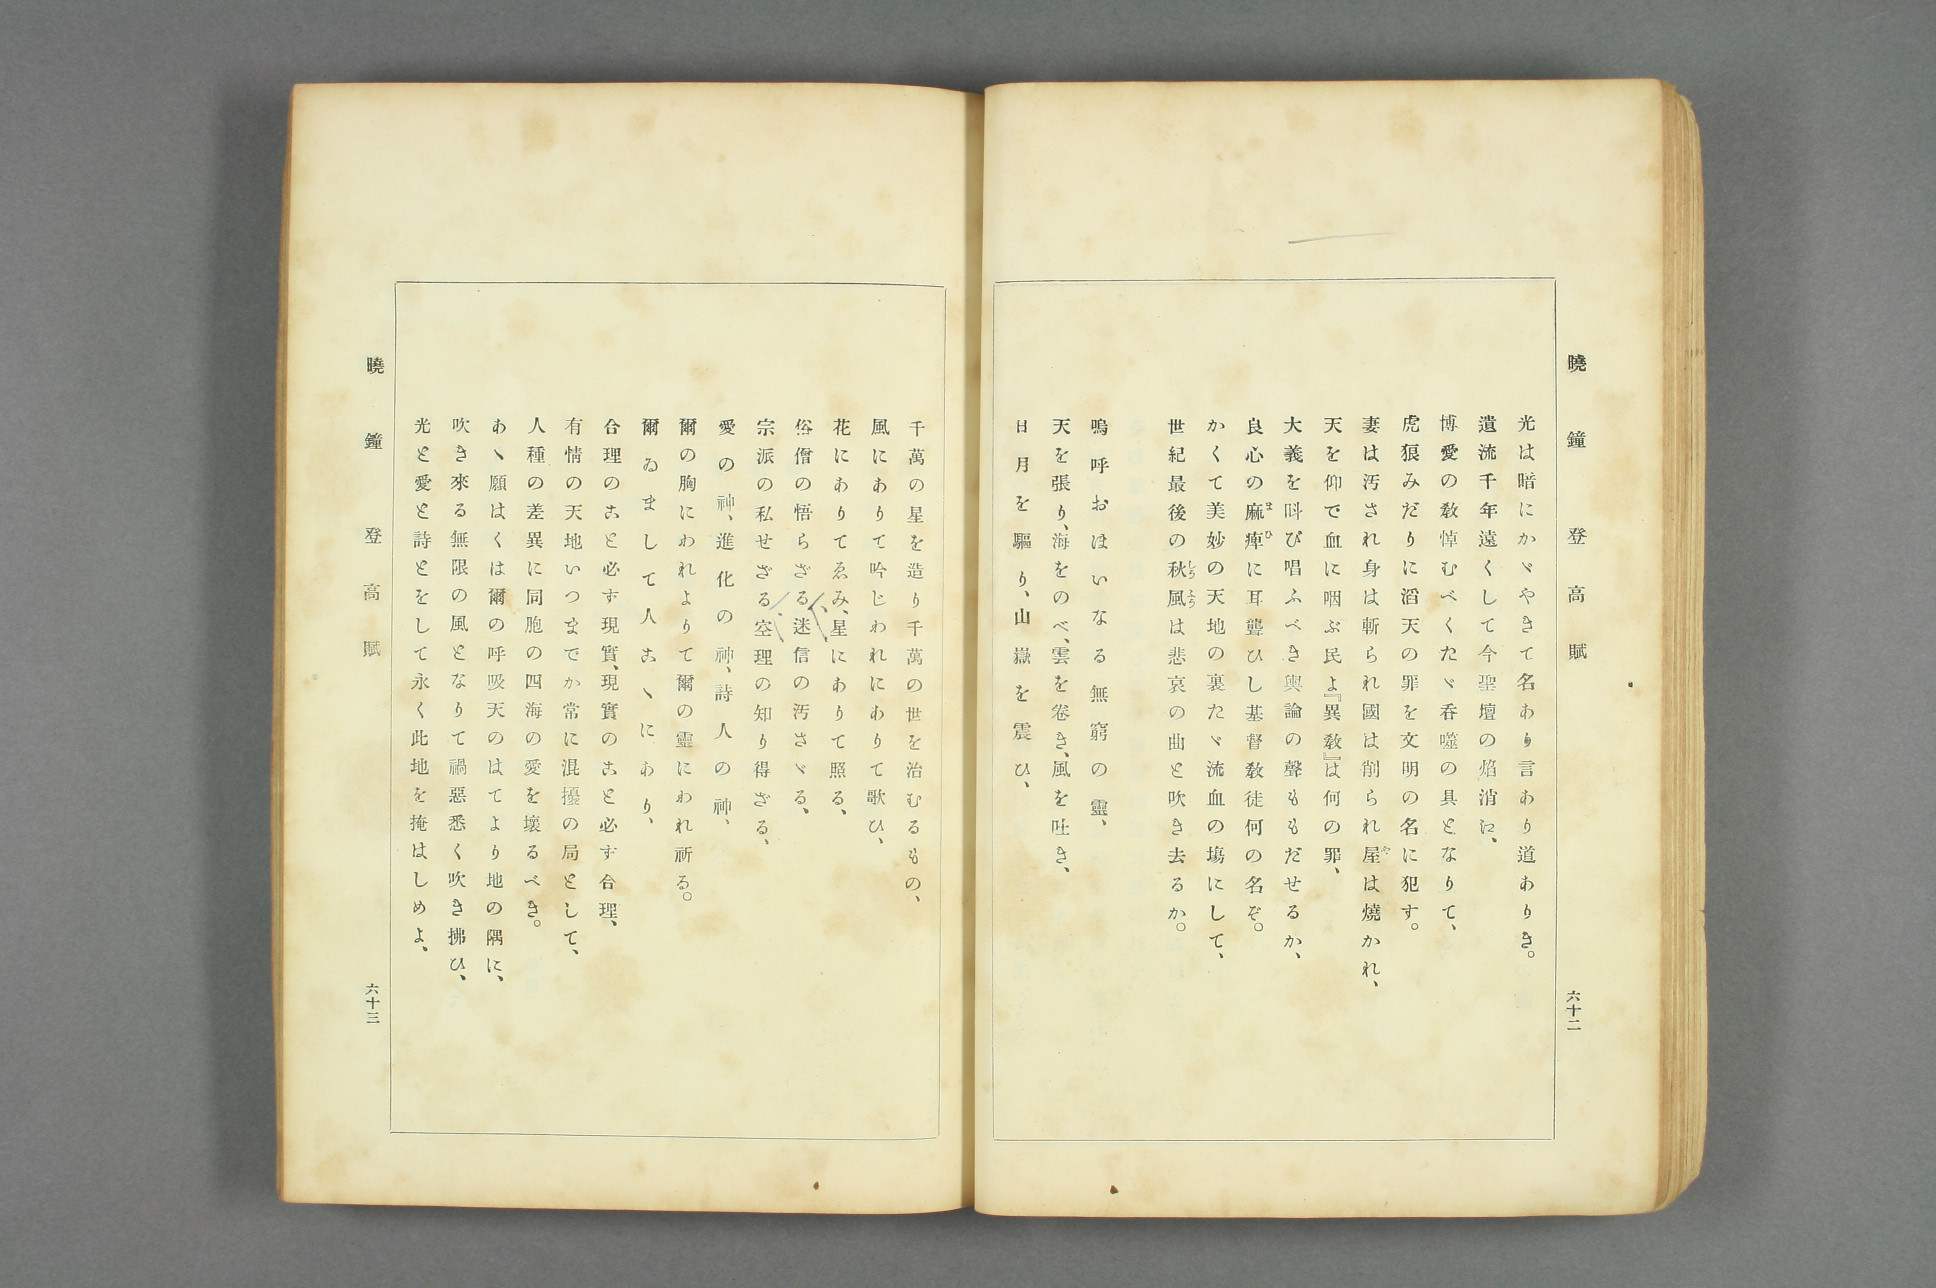 曉鐘　登高賦　六十二
光は暗にかゞやきて名あり言あり道ありき。
遺流千年遠くして今聖壇の焰消江、
博愛の敎悼むべくたゞ呑噬の具となりて、
虎狼みだりに滔天の罪を文明の名に犯す。
妻は汚され身は斬られ國は削られ屋は燒かれ、
天を仰で血に咽ぶ民よ『異敎』は何の罪、
大義を叫び唱ふべき輿論の聲ももだせるか、
良心の麻痺に耳聾ひし基督敎徒何の名ぞ。
かくて美妙の天地の裏たゞ流血の塲にして、
世紀最後の秋風は悲哀の曲と吹き去るか。
嗚呼おほいなる無窮の靈、
天を張り、海をのべ、雲を卷き、風を吐き、
日月を驅り、山嶽を震ひ、
千萬の星を造り千萬の世を治むるもの、
風にありて吟じわれにありて歌ひ、
花にありてゑみ、星にありて照る、
俗僧の悟らざる迷信の汚さゞる、
宗派の私せざる空理の知り得ざる、
愛の神、進化の神、詩人の神、
爾の胸にわれよりて爾の靈にわれ祈る。
爾ゐまして人こゝにあり、
合理のこと必ず現實、現實のこと必ず合理、
有情の天地いつまでか常に混擾の局として、
人種の差異に同胞の四海の愛を壞るべき。
あゝ願はくは爾の呼吸天のはてより地の隅に、
吹き來る無限の風となりて禍惡悉く吹き拂ひ、
光と愛と詩とをして永く此地を掩はしめよ、
曉鐘　登高賦　六十三